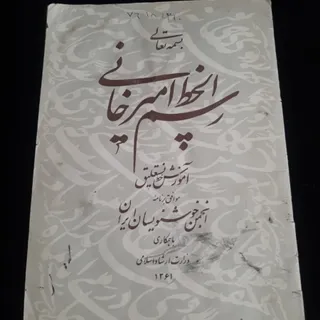 بسمه تعالی
رسم الخط امیرخانی
آموزش خط نستعلیق
انجمن خوشنویسان ایران
با همکاری
وزارت ارشاد اسلامی
۱۳۶۱